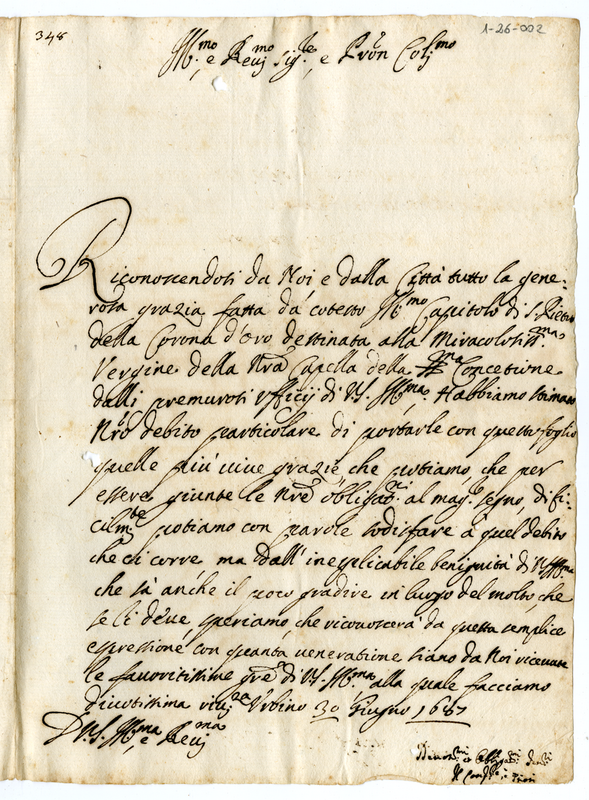 348
1-26-002
Ill.mo e Rev. Sig.re, e Pron Col.mo
Riconoscendosi da Noi e dalla Città tutto la gene:
rosa grazia fatta da cotesto Ill.mo Capitolo di S. Pietro
della Corona d'oro destinata alla Miracolosiss.ma
Vergine della Nra Capella della Concetione
dalli premurosi Ufficij di V.S. Ill.ma. Habbiamo stimato
Nro debito particolare di portarle con questo foglio
quelle più vive grazie che potiamo, che per
essere giunte le Nre obligao.ni al mag.r segno, difi:
cilm.te potiamo con parole sodisfare à quel debito
che ci corre, ma dall'inesplicabile benignità di V.S. Ill.ma
che sà anche il poco gradire in luogo del molto che
se li deve speriamo, che riconoscerà da questa semplice
espressione, con quanta veneratione siano da Noi ricevute
le favoritissime gre di V.S. Ill.ma alla quale facciamo
divotissima riv.za Urbino 30 Giugno 1687
D V.S. Ill.ma e Rev.ma
Il Conf.re, e Priori